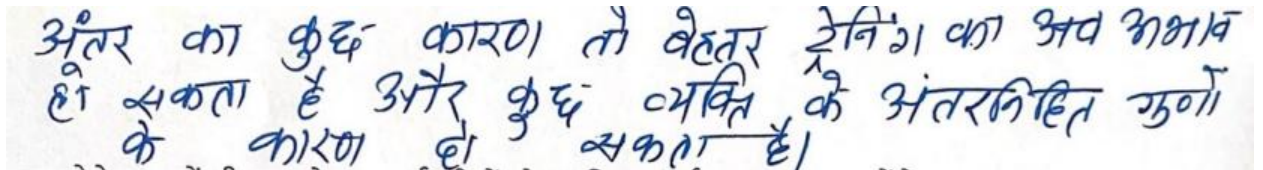 अंतर का कुछ कारण तो बेहतर ट्रेनिंग का अव अभाव
हो सकता है और कुछ व्यक्ति के अंतरनिहित गुणों
के कारण हो सकता है।